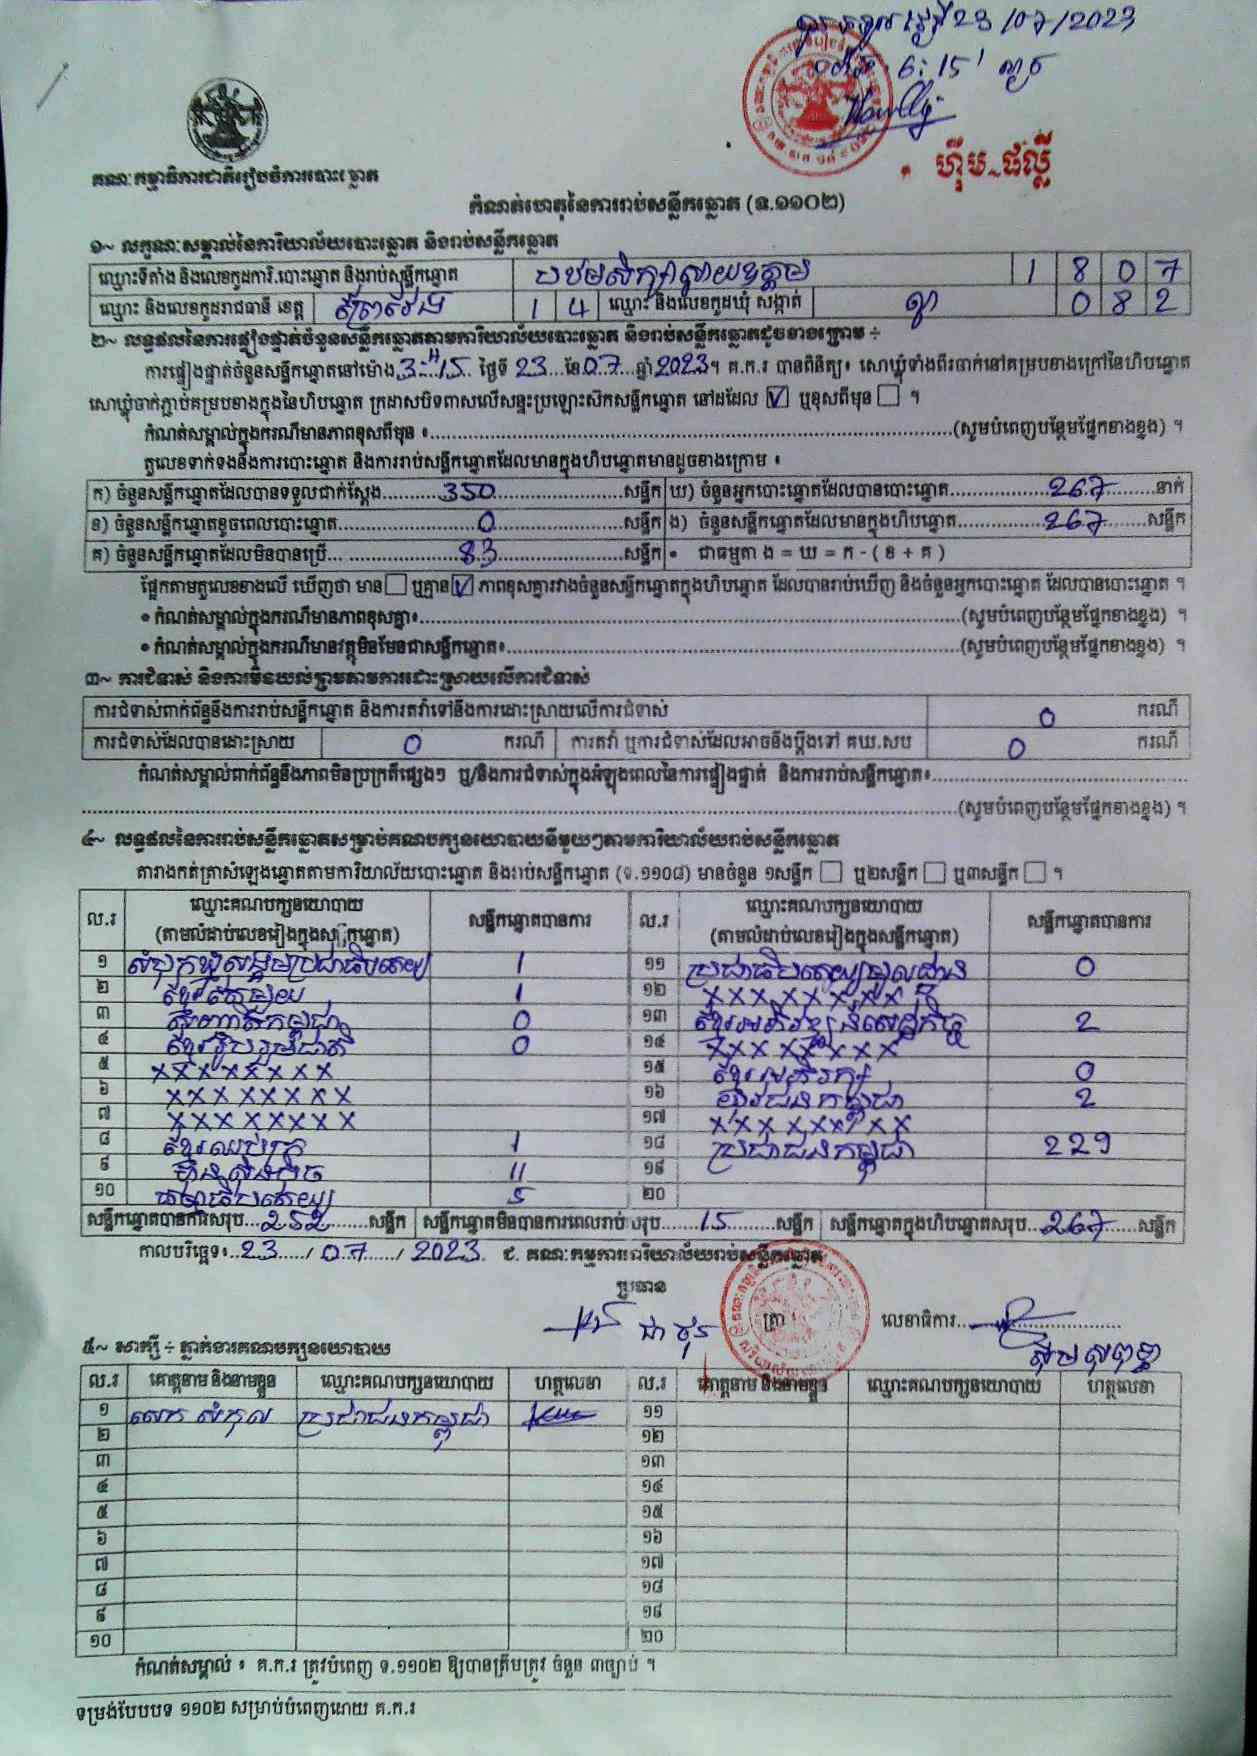 23/07/2023
6:15'
ហ៊ឹម ផល្លី
គណៈកម្មាធិការជាតិរៀបចំការបោះឆ្នោត
កំណត់ហេតុនៃការរាប់សន្លឹកឆ្នោត (ទ.១១០២)
១~ លក្ខណៈសម្គាល់នៃការិយាល័យបោះឆ្នោត និងរាប់សន្លឹកឆ្នោត
ឈ្មោះទីតាំង និងលេខកូដការិ.បោះឆ្នោត និងរាប់សន្លឹកឆ្នោត បឋមសិក្សាស្វាយឧត្តម 1 8 0 7
ឈ្មោះ និងលេខកូដរាជធានី ខេត្ត ព្រៃវែង 1 4 ឈ្មោះ និងលេខកូដឃុំ សង្កាត់ 0 8 2
២~ លទ្ធផលនៃការផ្ទៀងផ្ទាត់ចំនួនសន្លឹកឆ្នោតតាមការិយាល័យបោះឆ្នោត និងរាប់សន្លឹកឆ្នោតដូចខាងក្រោម ÷
ការផ្ទៀងផ្ទាត់ចំនួនសន្លឹកឆ្នោតនៅម៉ោង 3:15 ថ្ងៃទី 23 ខែ 07 ឆ្នាំ 2023។ គ.ក.រ បានពិនិត្យ៖ សោឃ្លុំទាំងពីរចាក់នៅគម្របខាងក្រៅនៃហិបឆ្នោត
សោឃ្លុំចាក់ភ្ជាប់គម្របខាងក្នុងនៃហិបឆ្នោត ក្រដាសបិទពាសលើសន្ទះប្រឡោះសិកសន្លឹកឆ្នោត នៅដដែល ☑ ឬខុសពីមុន ☐ ។
កំណត់សម្គាល់ក្នុងករណីមានភាពខុសពីមុន ៖ (សូមបំពេញបន្ថែមផ្នែកខាងខ្នង) ។
តួលេខទាក់ទងនឹងការបោះឆ្នោត និងការរាប់សន្លឹកឆ្នោតដែលមានក្នុងហិបឆ្នោតមានដូចខាងក្រោម ៖
ក) ចំនួនសន្លឹកឆ្នោតដែលបានទទួលជាក់ស្តែង 350 សន្លឹក ឃ) ចំនួនអ្នកបោះឆ្នោតដែលបានបោះឆ្នោត 267 នាក់
ខ) ចំនួនសន្លឹកឆ្នោតខូចពេលបោះឆ្នោត 0 សន្លឹក ង) ចំនួនសន្លឹកឆ្នោតដែលមានក្នុងហិបឆ្នោត 267 សន្លឹក
គ) ចំនួនសន្លឹកឆ្នោតដែលមិនបានប្រើ 83 សន្លឹក • ជាធម្មតា ង = ឃ = ក - ( ខ + គ )
ផ្អែកតាមតួលេខខាងលើ ឃើញថា មាន ☐ ឬគ្មាន ☑ ភាពខុសគ្នារវាងចំនួនសន្លឹកឆ្នោតក្នុងហិបឆ្នោត ដែលបានរាប់ឃើញ និងចំនួនអ្នកបោះឆ្នោត ដែលបានបោះឆ្នោត ។
• កំណត់សម្គាល់ក្នុងករណីមានភាពខុសគ្នា៖ (សូមបំពេញបន្ថែមផ្នែកខាងខ្នង) ។
• កំណត់សម្គាល់ក្នុងករណីមានវត្ថុមិនមែនជាសន្លឹកឆ្នោត៖ (សូមបំពេញបន្ថែមផ្នែកខាងខ្នង) ។
៣~ ការជំទាស់ និងការមិនយល់ព្រមតាមការដោះស្រាយលើការជំទាស់
ការជំទាស់ពាក់ព័ន្ធនឹងការរាប់សន្លឹកឆ្នោត និងការតវ៉ាទៅនឹងការដោះស្រាយលើការជំទាស់ 0 ករណី
ការជំទាស់ដែលបានដោះស្រាយ 0 ករណី ការតវ៉ា ឬការជំទាស់ដែលអាចនឹងប្តឹងទៅ គឃ.សប 0 ករណី
កំណត់សម្គាល់ពាក់ព័ន្ធនឹងភាពមិនប្រក្រតីផ្សេងៗ ឬ/និងការជំទាស់ក្នុងអំឡុងពេលនៃការផ្ទៀងផ្ទាត់ និងការរាប់សន្លឹកឆ្នោត៖
(សូមបំពេញបន្ថែមផ្នែកខាងខ្នង) ។
៤~ លទ្ធផលនៃការរាប់សន្លឹកឆ្នោតសម្រាប់គណបក្សនយោបាយនីមួយៗតាមការិយាល័យរាប់សន្លឹកឆ្នោត
តារាងកត់ត្រាសំឡេងឆ្នោតតាមការិយាល័យបោះឆ្នោត និងរាប់សន្លឹកឆ្នោត (ទ.១១០៨) មានចំនួន ១សន្លឹក ☐ ឬ២សន្លឹក ☐ ឬ៣សន្លឹក ☐ ។
ល.រ ឈ្មោះគណបក្សនយោបាយ (តាមលំដាប់លេខរៀងក្នុងសន្លឹកឆ្នោត) សន្លឹកឆ្នោតបានការ ល.រ ឈ្មោះគណបក្សនយោបាយ (តាមលំដាប់លេខរៀងក្នុងសន្លឹកឆ្នោត) សន្លឹកឆ្នោតបានការ
១ សំបុកឃ្មុំសង្គមប្រជាធិបតេយ្យ 1 ១១ ប្រជាធិបតេយ្យមូលដ្ឋាន 0
២ ខ្មែរតែមួយ 1 ១២ xxxxxxxx
៣ សញ្ជាតិកម្ពុជា 0 ១៣ ខ្មែរអភិវឌ្ឍន៍សេដ្ឋកិច្ច 2
៤ ខ្មែររួបរួមជាតិ 0 ១៤ xxxxxxxx
៥ xxxxxxxx ១៥ ខ្មែរអភិរក្ស 0
៦ xxxxxxxx ១៦ យុវជនកម្ពុជា 2
៧ xxxxxxxx ១៧ xxxxxxxx
៨ ខ្មែរឈប់ក្រ 1 ១៨ ប្រជាជនកម្ពុជា 229
៩ ហ៊្វុនស៊ិនប៉ិច 11 ១៩
១០ ធម្មាធិបតេយ្យ 5 ២០
សន្លឹកឆ្នោតបានការសរុប 252 សន្លឹក សន្លឹកឆ្នោតមិនបានការពេលរាប់សរុប 15 សន្លឹក សន្លឹកឆ្នោតក្នុងហិបឆ្នោតសរុប 267 សន្លឹក
កាលបរិច្ឆេទ៖ 23 / 07 / 2023 ជ. គណៈកម្មការការិយាល័យរាប់សន្លឹកឆ្នោត
ប្រធាន
ត្រា លេខាធិការ
៥~ សាក្សី ÷ ភ្នាក់ងារគណបក្សនយោបាយ
ល.រ គោត្តនាម និងនាមខ្លួន ឈ្មោះគណបក្សនយោបាយ ហត្ថលេខា ល.រ គោត្តនាម និងនាមខ្លួន ឈ្មោះគណបក្សនយោបាយ ហត្ថលេខា
១ ប្រជាជនកម្ពុជា ១១
២ ១២
៣ ១៣
៤ ១៤
៥ ១៥
៦ ១៦
៧ ១៧
៨ ១៨
៩ ១៩
១០ ២០
កំណត់សម្គាល់ ៖ គ.ក.រ ត្រូវបំពេញ ទ.១១០២ ឱ្យបានត្រឹមត្រូវ ចំនួន ៣ច្បាប់ ។
ទម្រង់បែបបទ ១១០២ សម្រាប់បំពេញដោយ គ.ក.រ